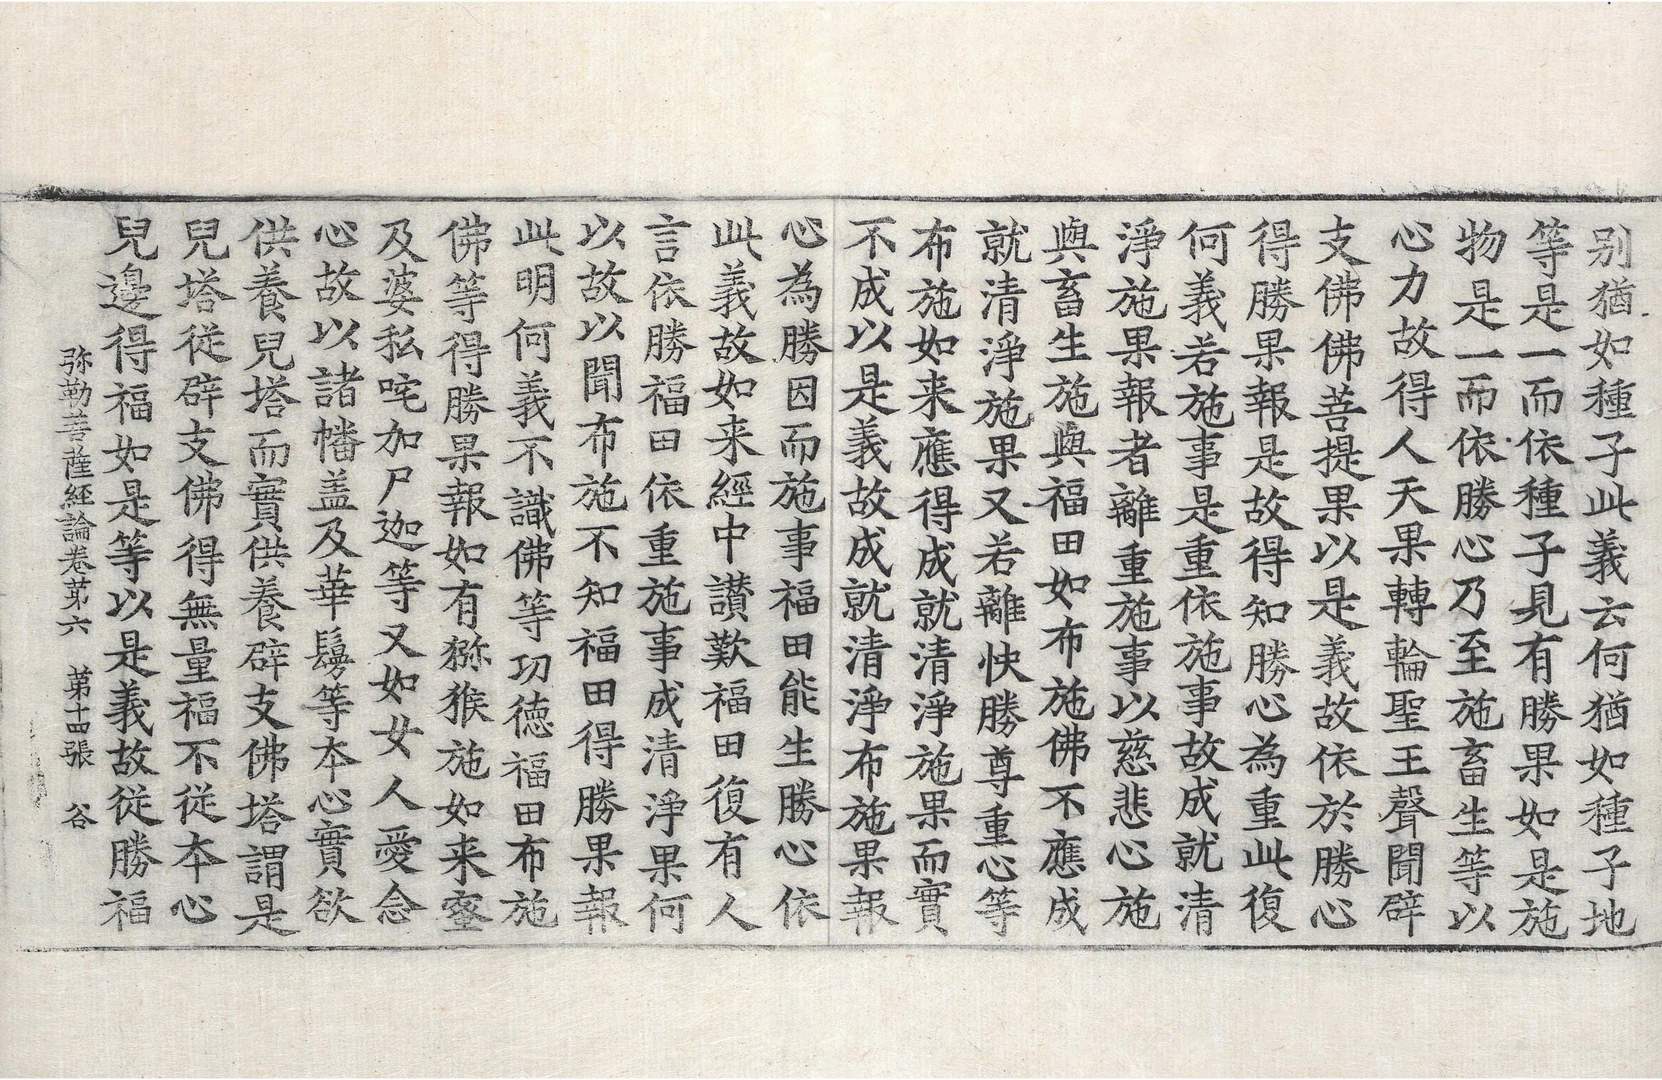 别猶如種子此義云何猶如種子地
等是一而依種子見有勝果如是施
物是一而依勝心乃至施畜生等以
心力故得人天果轉輪聖王聲聞辟
支佛佛菩提果以是義故依於勝心
得勝果報是故得知勝心為重此復
何義若施事是重依施事故成就清
淨施果報者離重施事以慈悲心施
與畜生施與福田如布施佛不應成
就清淨施果又若離快勝尊重心等
布施如来應得成就清淨施果而實
不成以是義故成就清淨布施果報
心為勝因而施事福田能生勝心依
此義故如来經中讃歎福田復有人
言依勝福田依重施事成清淨果何
以故以聞布施不知福田得勝果報
此明何義不識佛等功徳福田布施
佛等得勝果報如有猕猴施如来蜜
及婆私咤加尸迦等又如女人愛念
心故以諸幡盖及華鬘等本心實欲
供養兒塔而實供養辟支佛塔謂是
兒塔従辟支佛得無量福不従本心
兒邊得福如是等以是義故従勝福
弥勒菩薩經論卷苐六 第十四張 谷